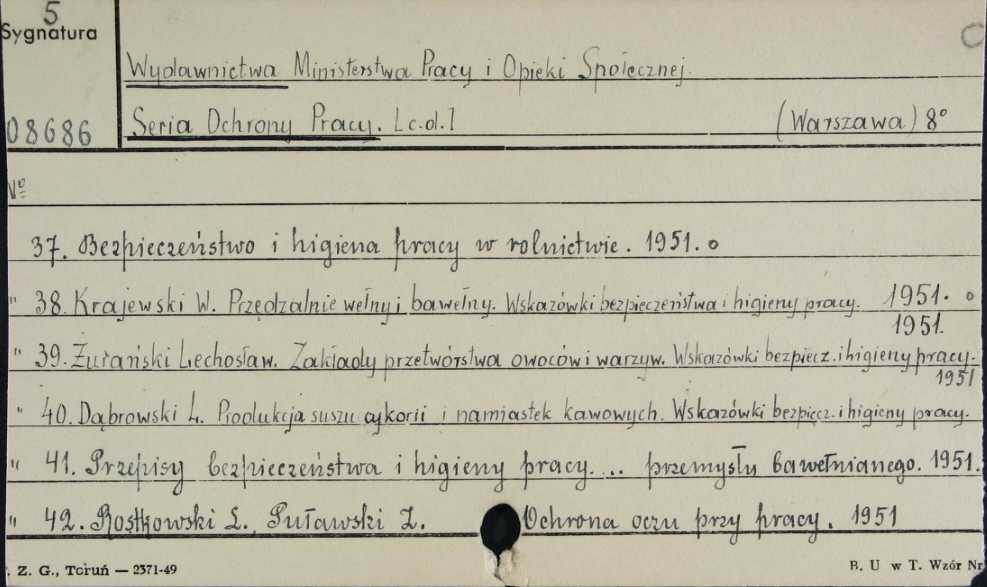 5
Sygnatura
08686
C
Wydawnictwa Ministerstwa Pracy i Opieki Społecznej.
Seria Ochrony Pracy. [c.d.] (Warszawa) 8°
№
37. Bezpieczeństwo i higiena pracy w rolnictwie. 1951. o
" 38. Krajewski W. Przędzalnie wełny i bawełny. Wskazówki bezpieczeństwa i higieny pracy. 1951. o
1951.
" 39. Żurański Lechosław. Zakłady przetwórstwa owoców i warzyw. Wskazówki bezpiecz. i higieny pracy.
1951
" 40. Dąbrowski L. Produkcja suszu cykorii i namiastek kawowych. Wskazówki bezpiecz. i higieny pracy.
" 41. Przepisy bezpieczeństwa i higieny pracy... przemysłu bawełnianego. 1951.
" 42. Rostkowski L. Puławski Z. Ochrona oczu przy pracy. 1951
Z. G., Toruń — 2371-49
B. U w T. Wzór Nr